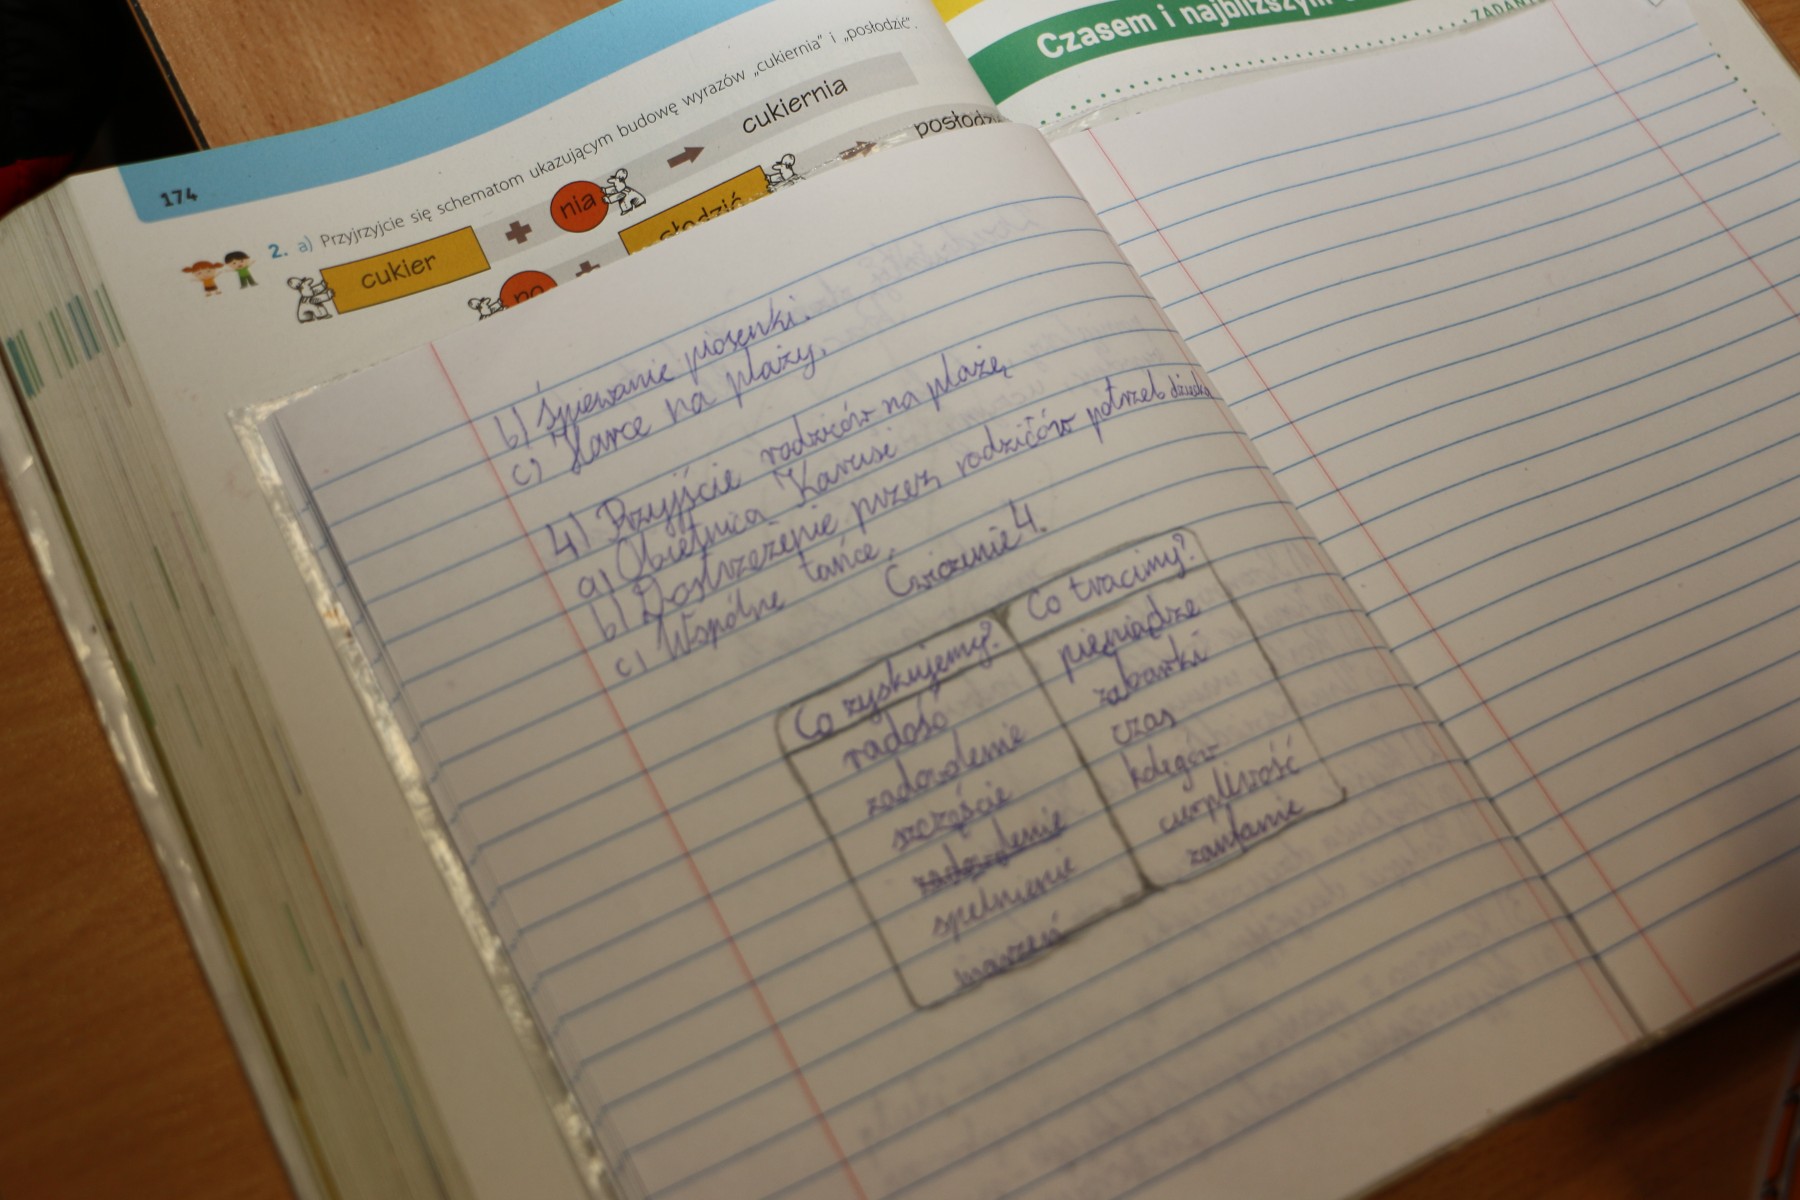 174
2. a) Przyjrzyjcie się schematom ukazującym budowę wyrazów „cukiernia" i „posłodzić".
cukier + nia → cukiernia
po + słodzić → posłodzi
Czasem i najbliższym
ZADANI
b) Śpiewanie piosenki.
c) Harce na plaży.
4) Przyjście rodziców na plażę
a) Obietnica Karusi
b) Dostrzeżenie przez rodziców potrzeb dziecka
c) Wspólne tańce.
Ćwiczenie 4.
Co zyskujemy? Co tracimy?
radość pieniądze
zadowolenie zabawki
szczęście czas
zadowolenie kolegów
spełnienie cierpliwość
marzeń zaufanie